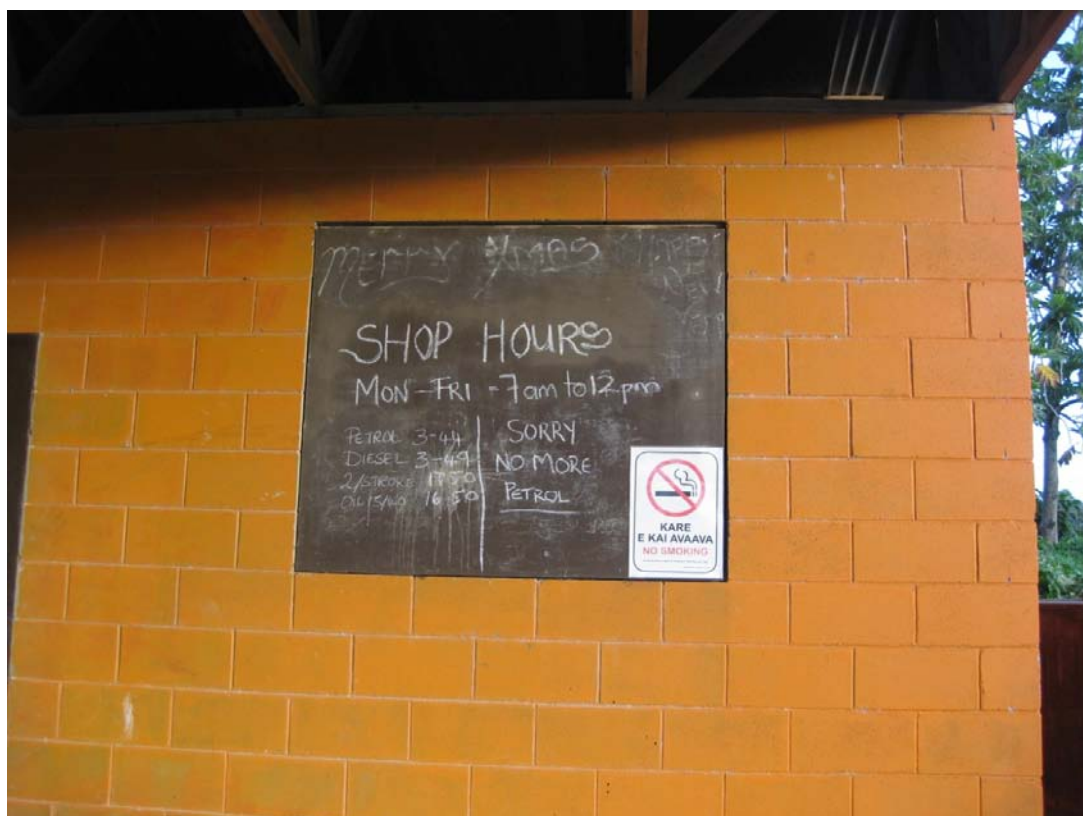 MERRY XMAS
SHOP HOURS
MON-FRI - 7am to 12 pm
PETROL 3-44
DIESEL 3-49
2/STROKE
OIL 16.50
SORRY
NO MORE
PETROL
KARE
E KAI AVAAVA
NO SMOKING